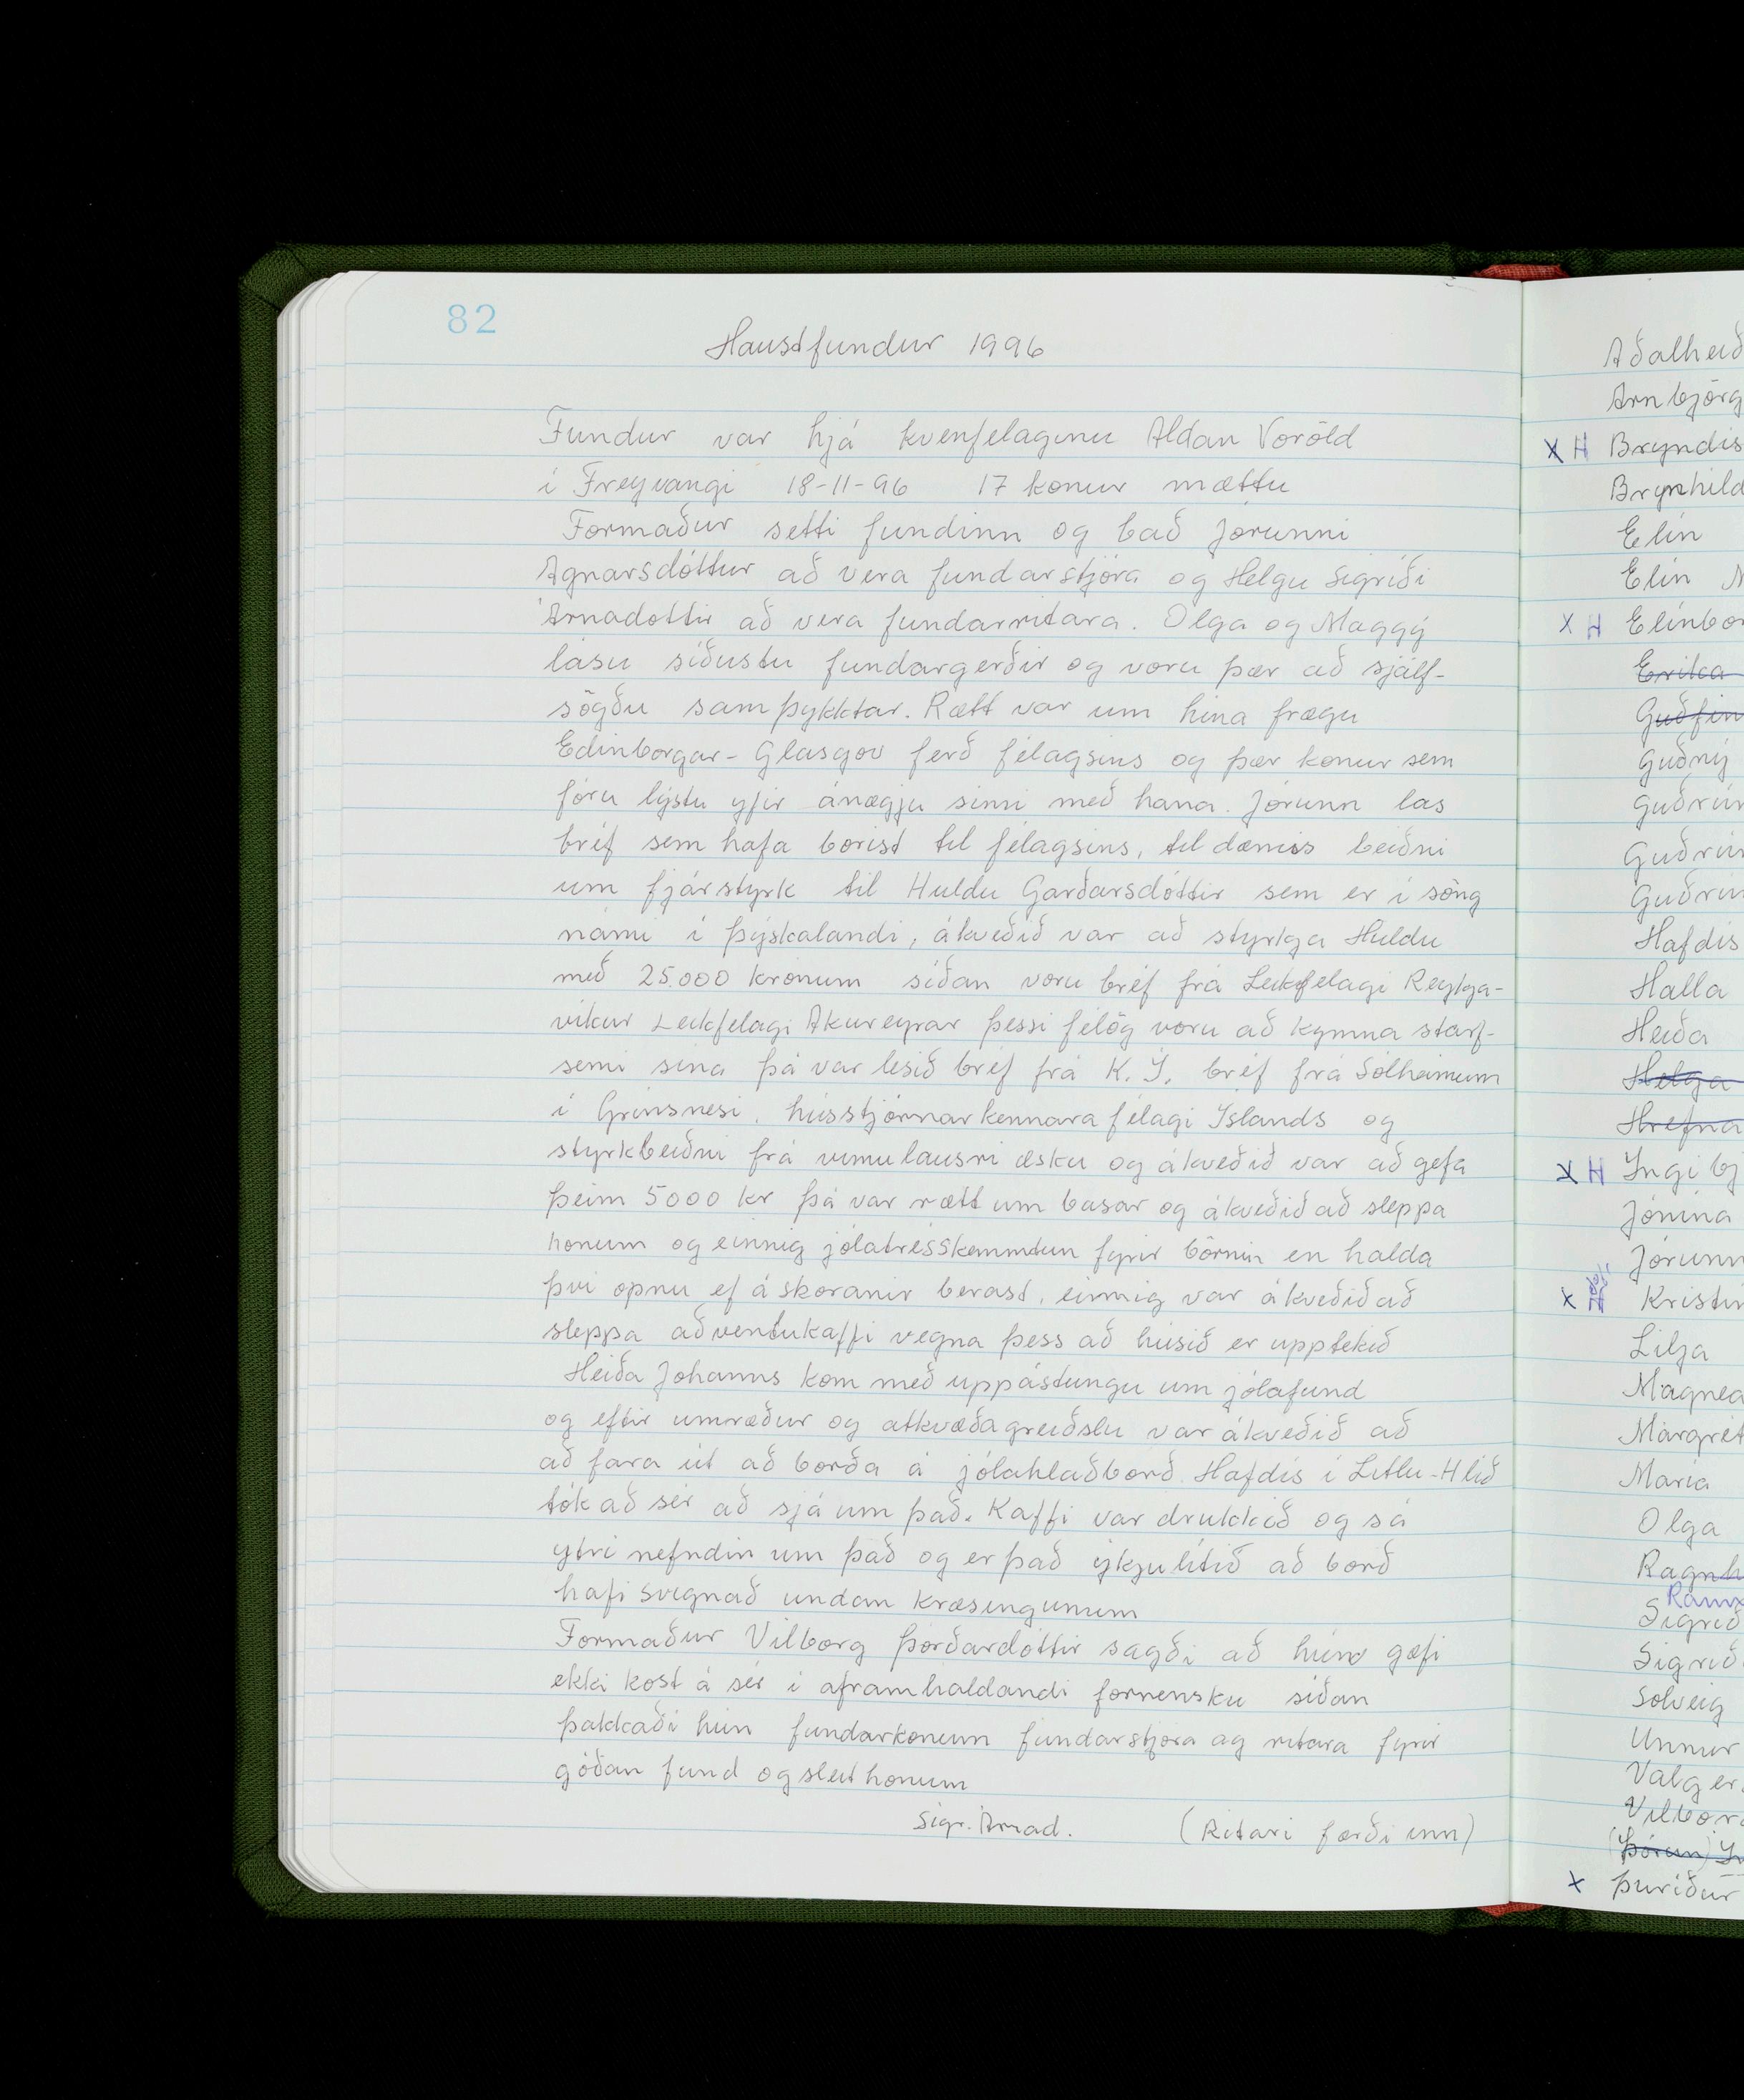 82
Haustfundur 1996
Fundur var hjá kvenfelaginu Aldan Voröld
í Freyvangi 18-11-96 17 konur mættu
Formaður setti fundinn og bað Jórunni
Agnarsdóttur að vera fundarstjóra og Helgu Sigríði
Árnadottir að vera fundarritara. Olga og Maggý
lásu síðustu fundargerðir og voru þær að sjálf-
sögðu samþykktar. Rætt var um hina frægu
Edinborgar-Glasgov ferð félagsins og þær konur sem
fóru lýstu yfir ánægju sinni með hana. Jórunn las
bréf sem hafa borist til félagsins, til dæmiss beiðni
um fjárstyrk til Huldu Garðarsdóttir sem er í söng
námi í Þýskalandi, ákveðið var að styrkja Huldu
með 25.000 krónum síðan voru bréf frá Leikfelagi Reykja-
víkur Leikfelagi Akureyrar þessi félög voru að kynna starf-
semi sína þá var lesið bréf frá K.Í. bréf frá Sólheimum
í Grinsnesi, hússtjórnarkennara félagi Íslands og
styrkbeiðni frá vimulausri æsku og ákveðið var að gefa
þeim 5000 kr þá var rætt um basar og ákveðið að sleppa
honum og einnig jólatrésskemmtun fyrir börnin en halda
því opnu ef áskoranir berast, einnig var ákveðið að
sleppa aðventukaffi vegna þess að húsið er upptekið
Heiða Johanns kom með uppástungu um jólafund
og eftir umræður og atkvæðagreiðslu var ákveðið að
að fara út að borða á jólahlaðborð. Hafdís í Litlu-Hlíð
tók að sér að sjá um það. Kaffi var drukkið og sá
ytri nefndin um það og er það ýkjulítið að borð
hafi svignað undan kræsingunum
Formaður Vilborg Þórðardóttir sagði að hún gæfi
ekki kost á sér í aframhaldandi formensku síðan
þakkaði hún fundarkonum fundarstjóra og ritara fyrir
góðan fund og sleit honum
Sigr. Árnad. (Ritari færði inn)
Aðalheið
Arnbjörg
X H Bryndis
Brynhild
Elín
Elín
X H Elínbor
Erika
Guðfin
Guðný
Guðrún
Guðrún
Guðrún
Hafdís
Halla
Heiða
Helga
Hrefna
X H Ingibj
Jónína
Jórunn
X Kristín
Lilja
Magnea
Margrét
María
Olga
Ragnh
Sigrið
Sigríð
Solveig
Unnur
Valger
Vilbor
(Þórun)
X Þuríður